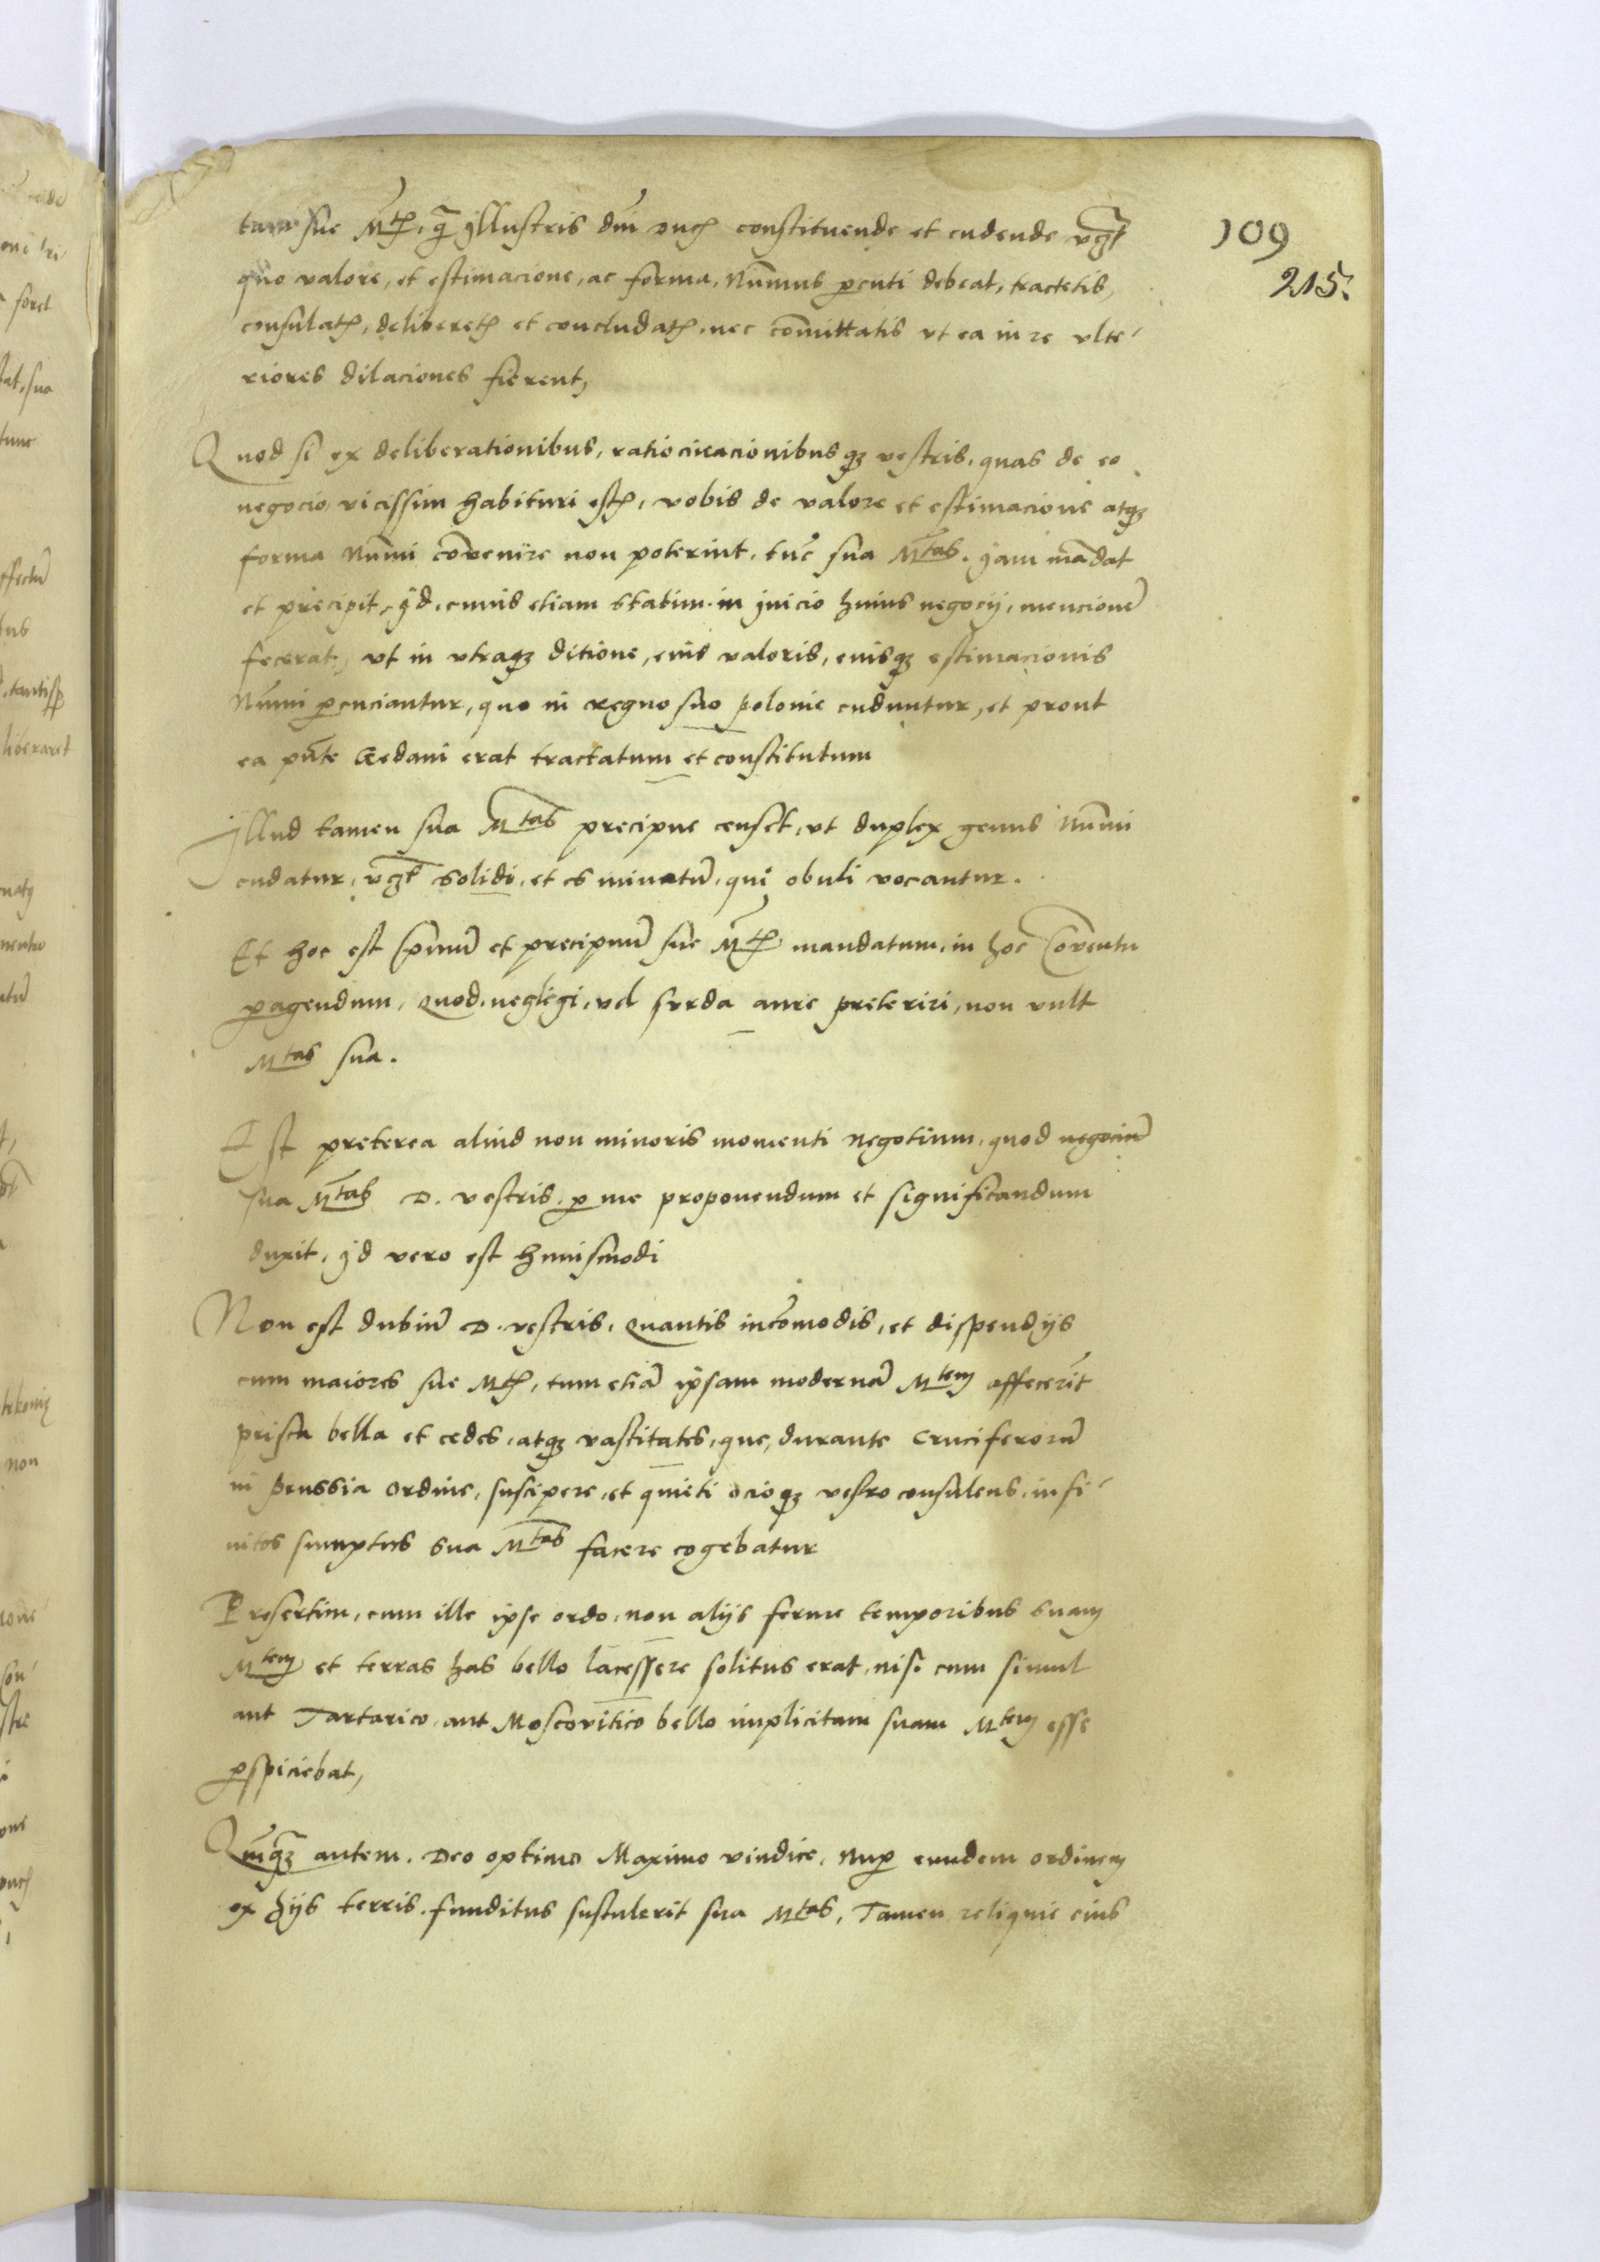 109
215.
tam sue Mtis, q̃ Illustris dni ducis constituende et cudende vȥt
quo valore, et estimacione, ac forma, Nummus percuti debeat, tractetis,
consulatis, deliberetis et concludatis, nec com̃ittatis vt ea in re vlte-
riores dilaciones fierent,
Quod si ex deliberationibus, ratiocinacionibusqȝ vestris, quas de eo
negocio vicissim habituri estis, vobis de valore et estimacione atqȝ
forma Num̃i co͞venire non poterint, tũc sua M͞tas. Jam mãdat
et precipit, Jd, cuius etiam statim in inicio huius negocij, mencionẽ
fecerat, vt in vtraqȝ ditione, eius valoris, eiusqȝ estimacionis
Num̃i percuciantur, quo in regno suo Polonie cuduntur, et prout
ea p̃nte Gedani erat tractatum et constitutum
Illud tamen sua M͞tas precipue censet, vt duplex genus Num̃i
cudatur, vȥt solidi, et es minutũ, qui obuli vocantur.
Et hoc est primũ et precipuũ sue Mtis mandatum, in hoc Co͞ventu
peragendum, Quod neglegi, vel surda aure preteriri, non vult
Mtas sua.
Est preterea aliud non minoris momenti negotium, quod negociũ
sua M͞tas D. vestris per me proponendum et significandum
duxit, Jd vero est huiusmodi
Non est dubiũ D. vestris, Quantis incõmodis, et dispendijs
cum maiores sue Mtis, tum etiã ipsam modernã Mtem affecerĩt
prisca bella et cedes, atqȝ vastitates, que, durante Cruciferorũ
in Prussia Ordine, suscipere, et quieti ocioqȝ vestro consulens, infi-
nitos sumptus sua M͞tas facere cogebatur
Presertim, cum ille ipse ordo, non alijs ferme temporibus suam
Mtem et terras has bello lacessere solitus erat, nisi cum simul
aut Tartarico, aut Moscovitico bello implicitam suam Mtem esse
perspiciebat,
Qũqȝ autem. Deo optimo Maximo vindice, Nuper eundem ordinem
ex hijs terris funditus sustulerit sua Mtas, Tamen reliquie eius